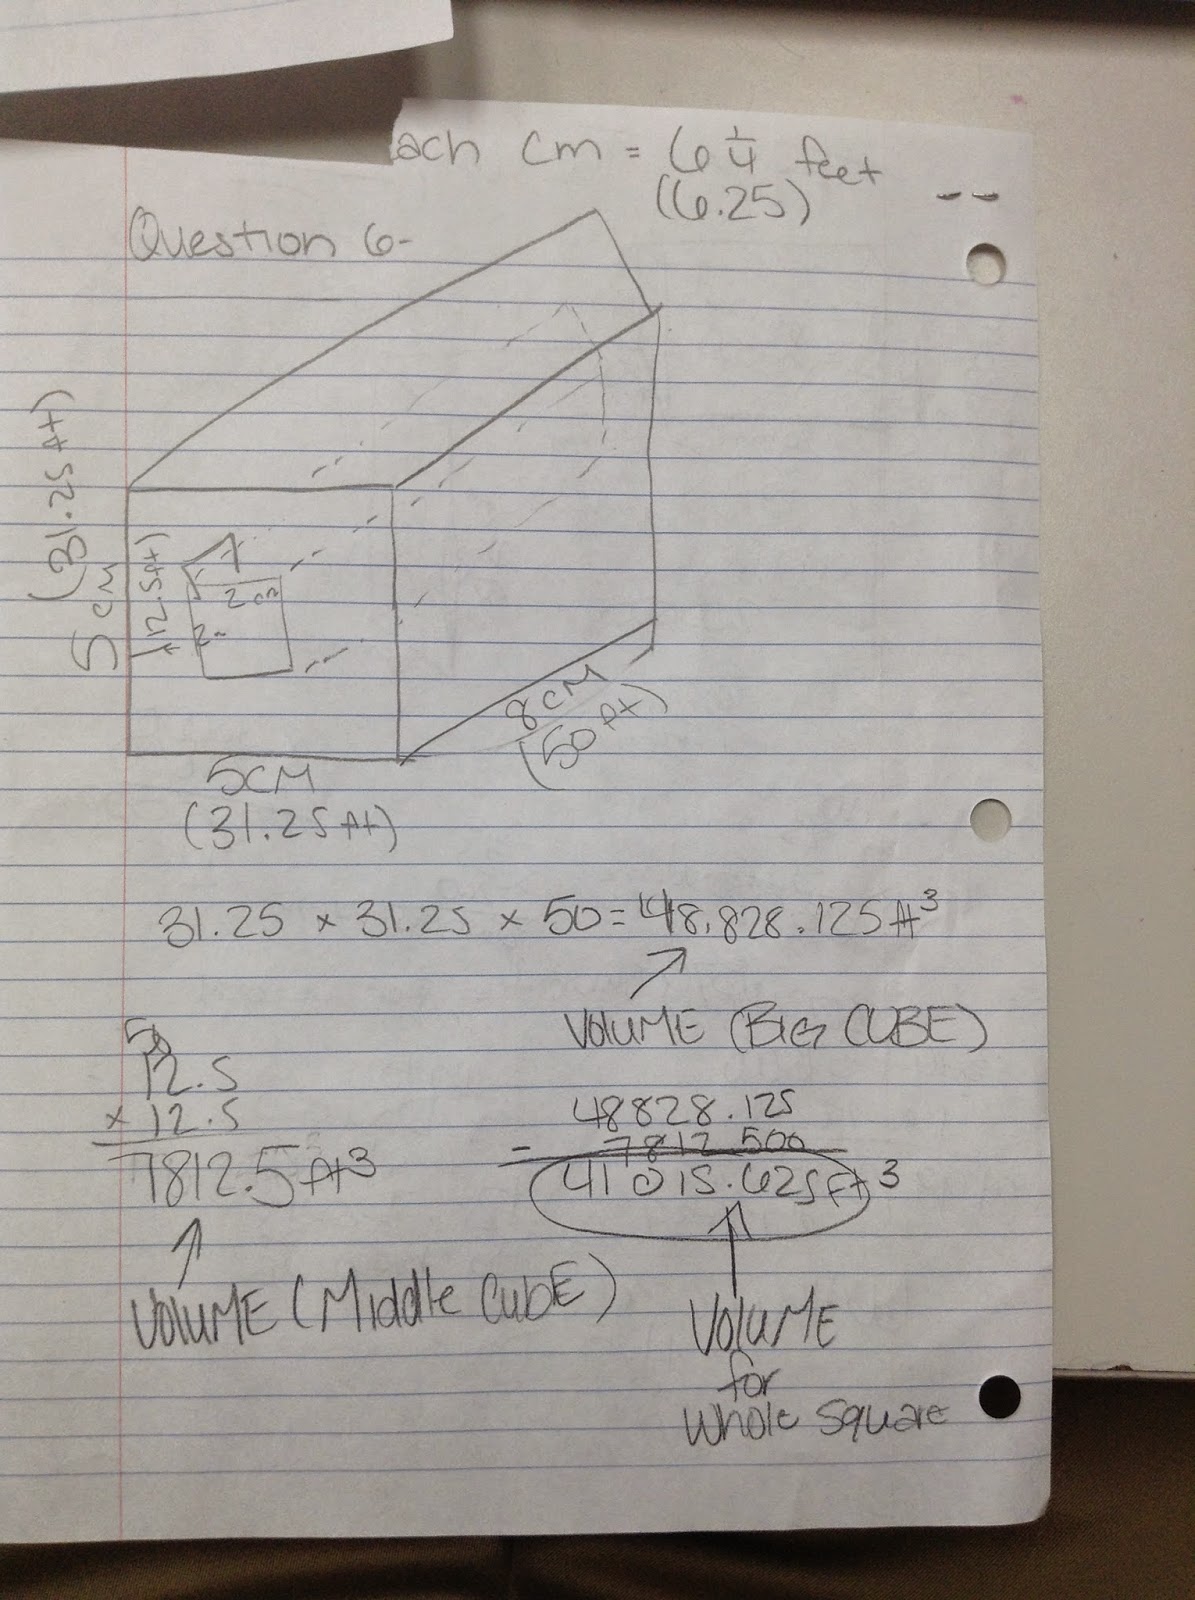 ach cm = 6 1/4 feet
(6.25)
Question 6-
5cm (31.25 ft)
(12.5ft)
2cm
5CM
(31.25 ft)
8CM
(50 ft)
31.25 x 31.25 x 50 = 48,828.125 ft³
VOLUME (BIG CUBE)
50
12.5
x 12.5
7812.5 ft³
VOLUME (Middle CubE)
48828.125
- 7812.500
41015.625 ft³
VOLUME
for
whole square